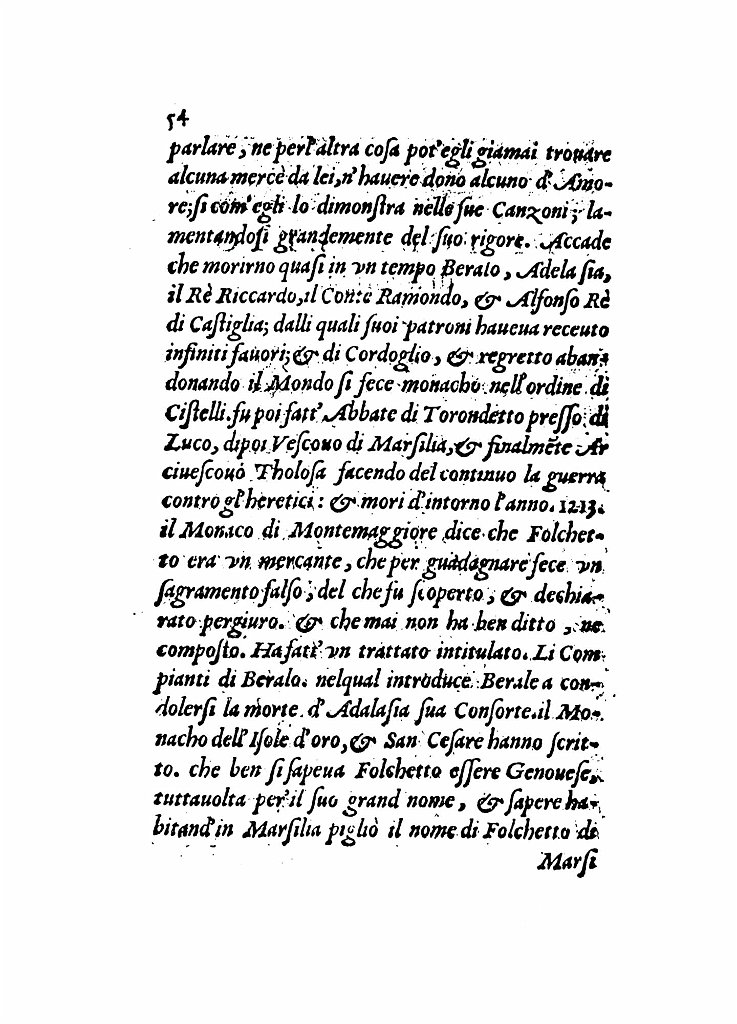 54
parlare, ne per l'altra coſa pot'egli giamai trouare
alcuna mercè da lei, n'hauere dono alcuno d'Amo-
re; ſi com'egli lo dimonſtra nelle ſue Canzoni; la-
mentandoſi grandemente del ſuo rigore. Accade
che morirno quaſi in vn tempo Beralo, Adelaſia,
il Rè Riccardo, il Conte Ramondo, & Alfonſo Rè
di Caſtiglia; dalli quali ſuoi patroni haueua receuto
infiniti fauori; & di Cordoglio, & regretto aban-
donando il Mondo ſi fece monacho nell'ordine di
Ciſtelli. fu poi fatt' Abbate di Torondetto preſſo di
Luco, dipoi Veſcouo di Marſilia, & finalmẽte Ar
ciueſcouo Tholoſa facendo del continuo la guerra
contro gl'heretici: & mori d'intorno l'anno. 1213.
il Monaco di Montemaggiore dice che Folchet-
to era vn mercante, che per guadagnare fece vn
ſagramento falſo, del che fu ſcoperto, & dechia-
rato pergiuro. & che mai non ha ben ditto, ne
compoſto. Ha fatt' vn trattato intitulato. Li Com
pianti di Beralo. nelqual introduce Berale a con-
dolerſi la morte d'Adalaſia ſua Conſorte. il Mo-
nacho dell'Iſole d'oro, & San Ceſare hanno ſcrit-
to. che ben ſi ſapeua Folchetto eſſere Genoueſe,
tuttauolta per il ſuo grand nome, & ſapere ha-
bitand'in Marſilia pigliò il nome di Folchetto di
Marſi